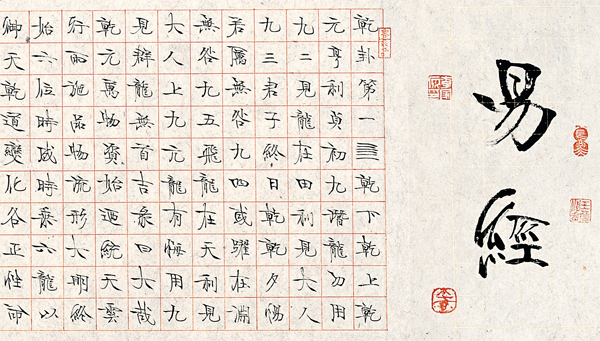 易經
乾卦第一䷀乾下乾上乾
元亨利貞初九潛龍勿用
九二見龍在田利見大人
九三君子終日乾乾夕惕
若厲無咎九四或躍在淵
無咎九五飛龍在天利見
大人上九亢龍有悔用九
見群龍無首吉彖曰大哉
乾元萬物資始迺統天雲
行雨施品物流形大明終
始六位時成時乘六龍以
御天乾道變化各正性命